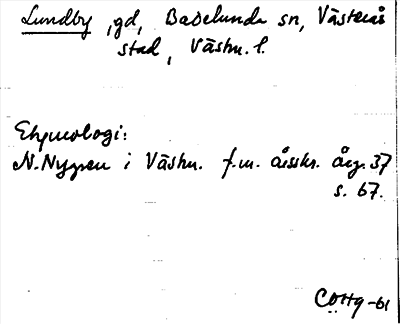 Lundby, gd, Badelunda sn, Västerås
stad, Västm. l.
Etymologi:
N. Nygren i Västm. f.m. årsskr. Årg. 37
s. 67.